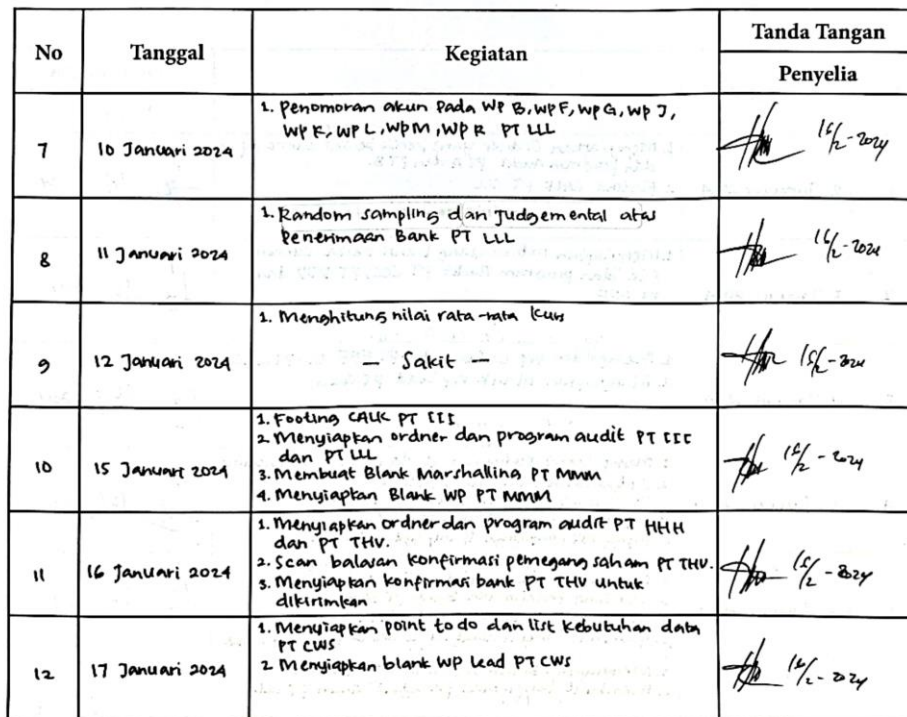 No Tanggal Kegiatan Tanda Tangan
Penyelia
7 10 Januari 2024 1. Penomoran akun Pada WP B, WP F, WP G, WP J,
WP K, WP L, WP M, WP R PT LLL
16/2-2024
8 11 Januari 2024 1. Random sampling dan Judgemental atas
Penerimaan Bank PT LLL
16/2-2024
9 12 Januari 2024 1. Menghitung nilai rata-rata kurs
— Sakit —
15/2-2024
10 15 Januari 2024 1. Footing CALK PT III
2. Menyiapkan ordner dan program audit PT III
dan PT LLL
3. Membuat Blank Marshallina PT MMM
4. Menyiapkan Blank WP PT MMM
2024
11 16 Januari 2024 1. Menyiapkan ordner dan program audit PT HHH
dan PT THV.
2. Scan balasan konfirmasi pemegang saham PT THV.
3. Menyiapkan konfirmasi bank PT THV untuk
dikirimkan
2024
12 17 Januari 2024 1. Menyiapkan point to do dan list kebutuhan data
PT CWS
2 Menyiapkan blank WP Lead PT CWS
2024